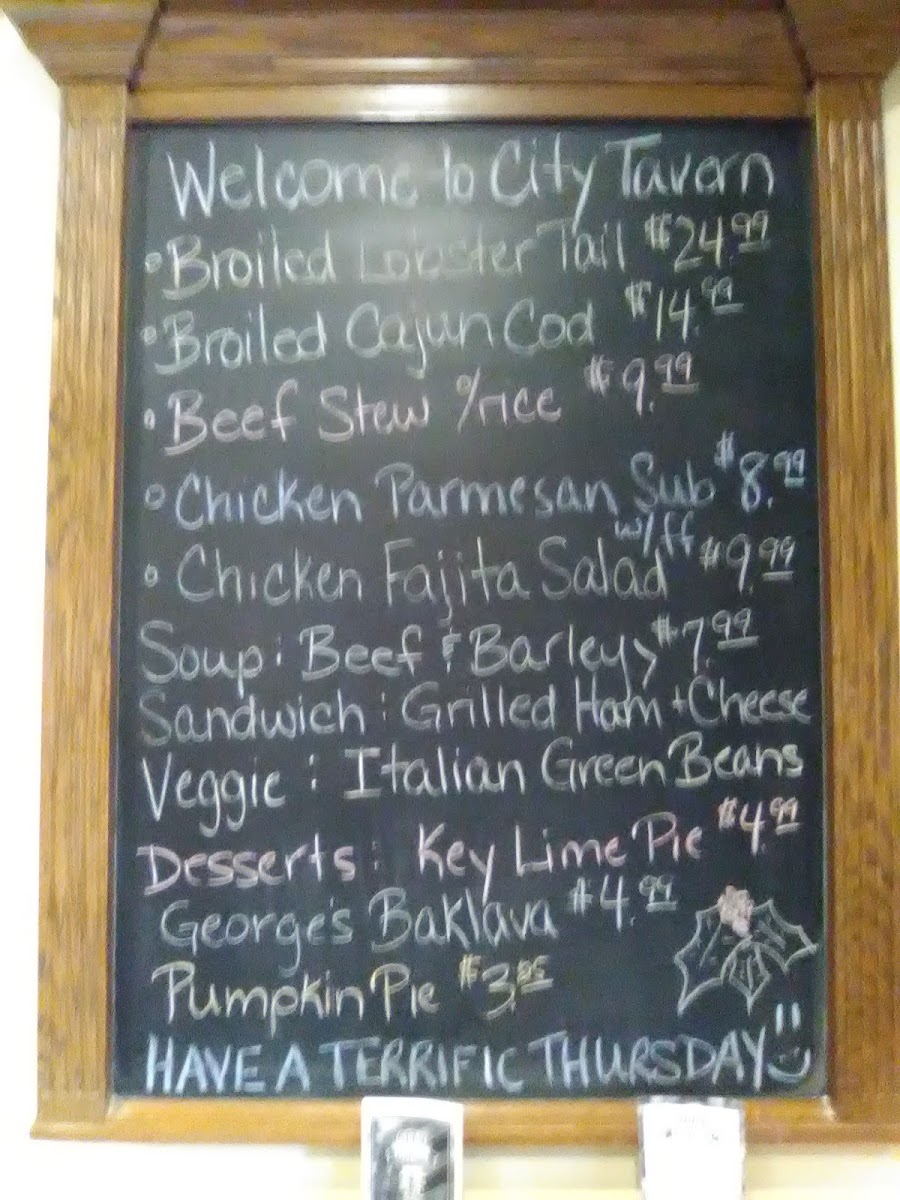 Welcome to City Tavern
• Broiled Lobster Tail $24.99
• Broiled Cajun Cod $14.99
• Beef Stew o/rice $9.99
• Chicken Parmesan Sub $8.99
w/ff
• Chicken Fajita Salad $9.99
Soup: Beef & Barley, $7.99
Sandwich: Grilled Ham + Cheese
Veggie: Italian Green Beans
Desserts: Key Lime Pie $4.99
George's Baklava $4.99
Pumpkin Pie
HAVE A TERRIFIC THURSDAY